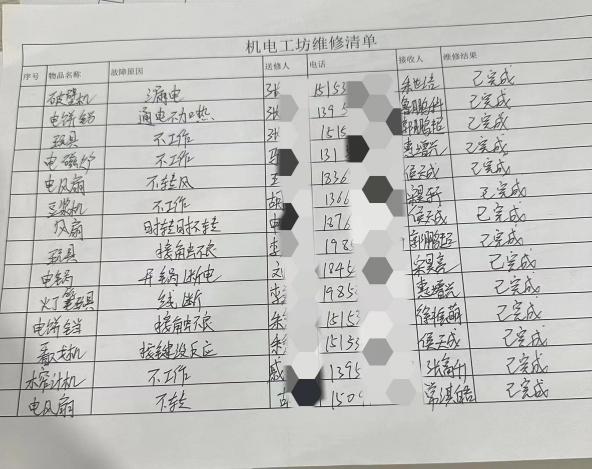 机电工坊维修清单
序号 物品名称 故障原因 送修人 电话 接收人 维修结果
破壁机 漏电 张 15153 已完成
电饼铛 通电不加热 张 1395 鲁鹏科 已完成
玩具 不工作 张 1515 郭鹏超 已完成
电磁炉 不工作 马 131 惠增元 已完成
电风扇 不转风 王 1836 侯天成 已完成
豆浆机 不工作 胡 1366 已完成
风扇 时转时不转 1876 侯天成 已完成
玩具 接触不良 李 198 郭鹏超 已完成
电锅 开锅断电 刘 1845 宋昊亮 已完成
灯笼玩具 线断 李 1985 惠增元 已完成
电饼铛 接触不良 朱 15153 已完成
看戏机 按键没反应 朱 15153 侯天成 已完成
水窄汁机 不工作 戚 1395 已完成
电风扇 不转 150 常淇皓 已完成